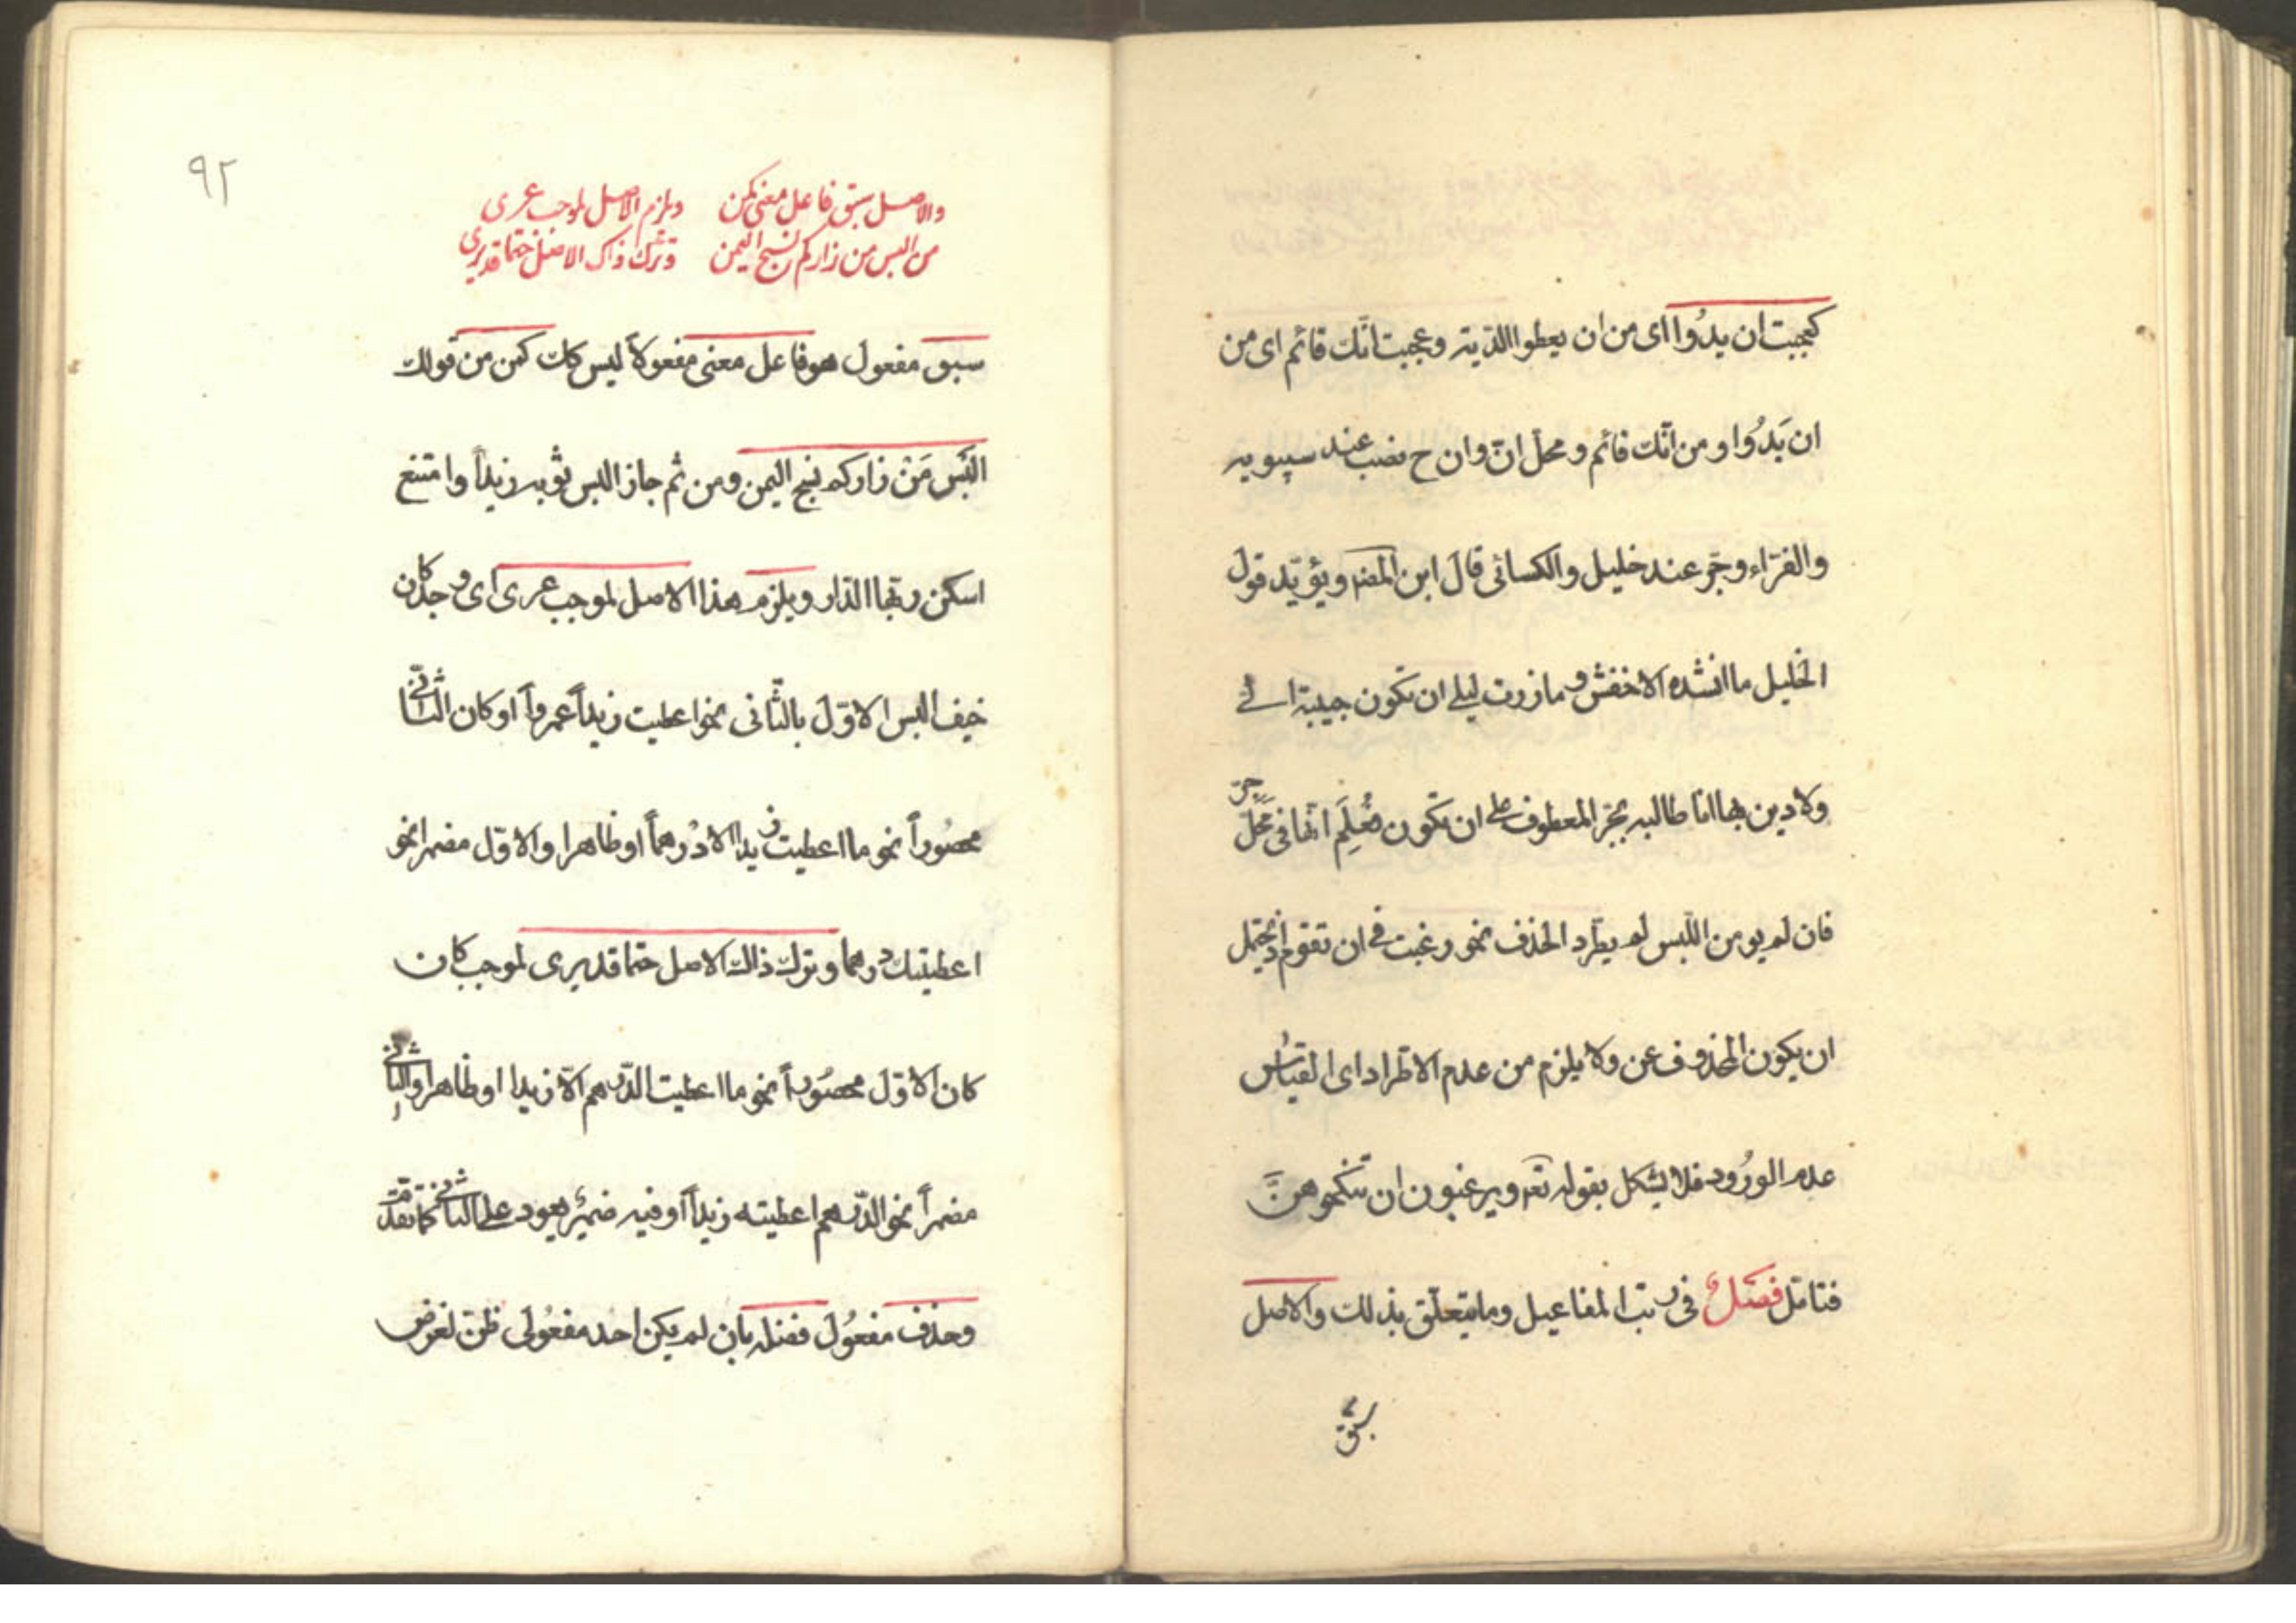 كعجبت ان يدُوا اى من ان يعطوا الدّية وعجبت انّك قائم اى من
ان يَدُوا ومن انّك قائم ومحلّ انّ وان ح نصب عند سيبويه
والفرّاء وجرّ عند خليل والكسائى قال ابن المصنه ويؤيّد قول
الخليل ما انشده الاخفش و مازرت ليلى ان تكون حبيبة الى
ولا دين بها انا طالبه بجرّ المعطوف على ان تكون فعُلِمَ انّها فى محلّ جرّ
فان لم يومن اللّبس لم يطّرد الحذف نحو رغبت فى ان تقوم اذ يحتمل
ان يكون المحذوف عن ولا يلزم من عدم الاطراد اى القياس
عدم الورُود فلا يشكل بقوله تعه ويرغبون ان تنكحوهنّ
فتامّل فصلٌ فى رتب المفاعيل وما يتعلّق بذلك والاصل
سبق
٩٢
والاصل سبق فاعل معنى كمن ويلزم الاصل لموجب عرى
من البس من زاركم نسج اليمن وترك ذاك الاصل حتما قد يرى
سبق مفعول هو فاعل معنى مفعولاً ليس كك كمن من قولك
البَس مَن زاركم نسج اليمن ومن ثم جاز البس ثوبه زيداً وامتنع
اسكن ربّها الدّار ويلزم هذا الاصل لموجب عرى اى وجد كان
خيف لبس الاوّل بالثّانى نحو اعطيت زيداً عمرواً او كان الثّانى
محصُوراً نحو ما اعطيت زيدا الا دْرهماً او ظاهرا والاوّل مضمرا نحو
اعطيتك درهما وترك ذاك الاصل حتما قد يرى لموجب كان
كان الاوّل محصُوراً نحو ما اعطيت الدّرهم الّا زيدا او ظاهرا والثانى
مضمراً نحو الدّرهم اعطيته زيداً او فيه ضميرٌ يعود على الثانى كما تقدّم
وحذف مفعُول فضله بان لم يكن احد مفعُولى ظنّ لغرض